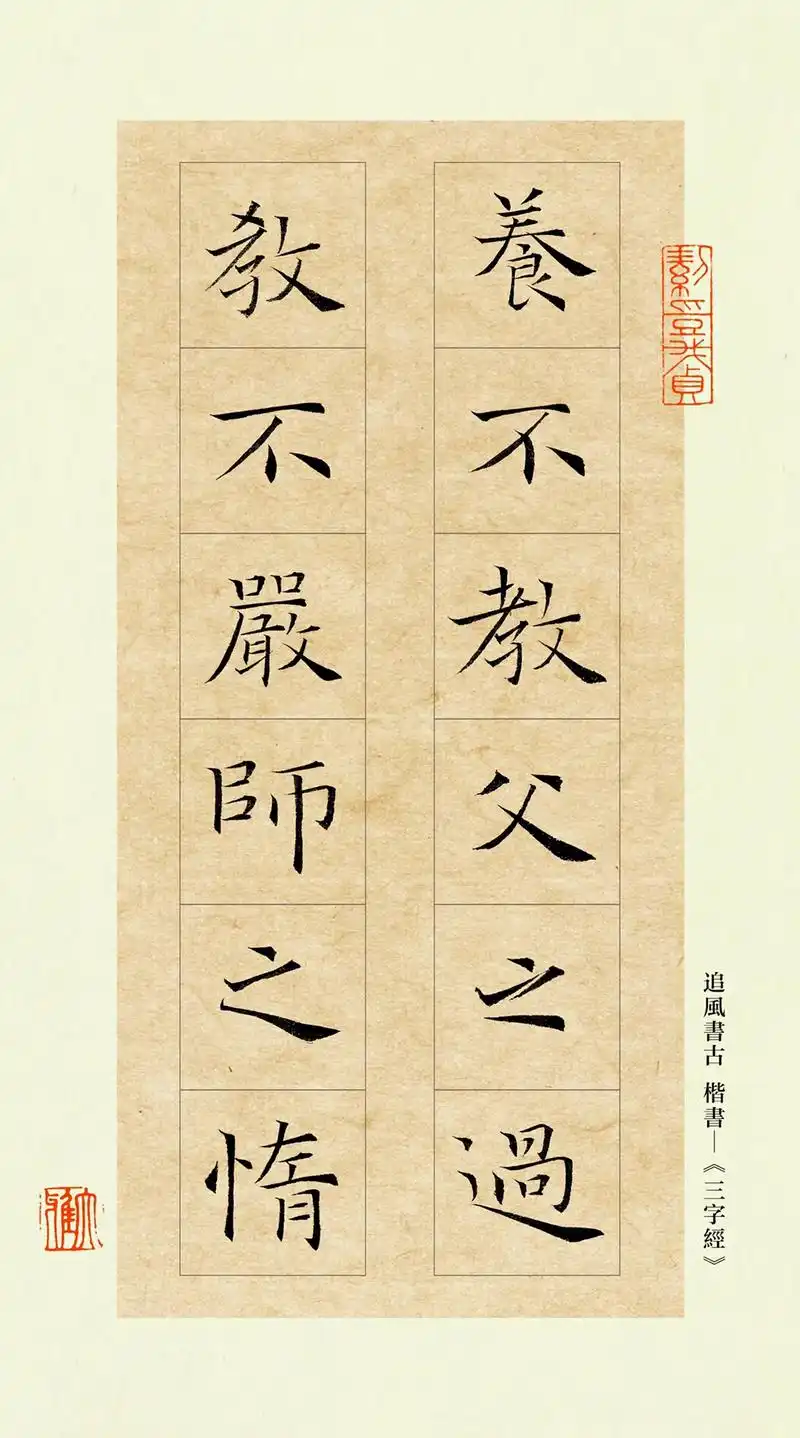 養不教父之過
教不嚴師之惰
追風書古 楷書—《三字經》